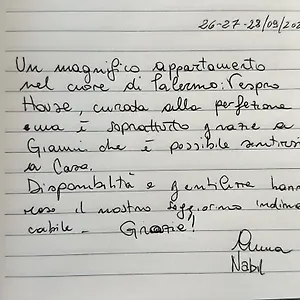 26-27-28/09/202
Un magnifico appartamento
nel cuore di Palermo: Vespro
House, curata alla perfezione
ma è soprattutto grazie a
Gianni che è possibile sentirsi
a Casa.
Disponibilità e gentilezza hann
reso il nostro soggiorno indimen
cabile. Grazie!
Anna
Nabil